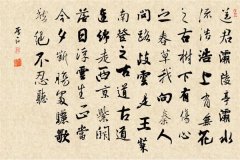 送君灞陵亭灞水
流浩浩上有無花
之古樹下有傷心
之春草我向秦人
問路歧云是王粲
南登之古道古道
連綿走西京紫闕
落日浮雲生正當
今夕斷腸處驪歌
愁絕不忍聽